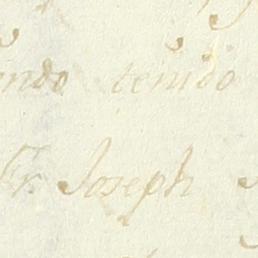 ndo tenido
Fr. Joseph